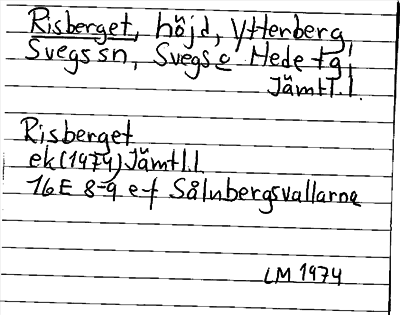 Risberget, höjd, Ytterberg,
Svegs sn, Svegs o Hede tg,
Jämtl.l.
Risberget
ek (1974) Jämtl.l.
16E 8-9 e-f Sålnbergsvallarna
LM 1974